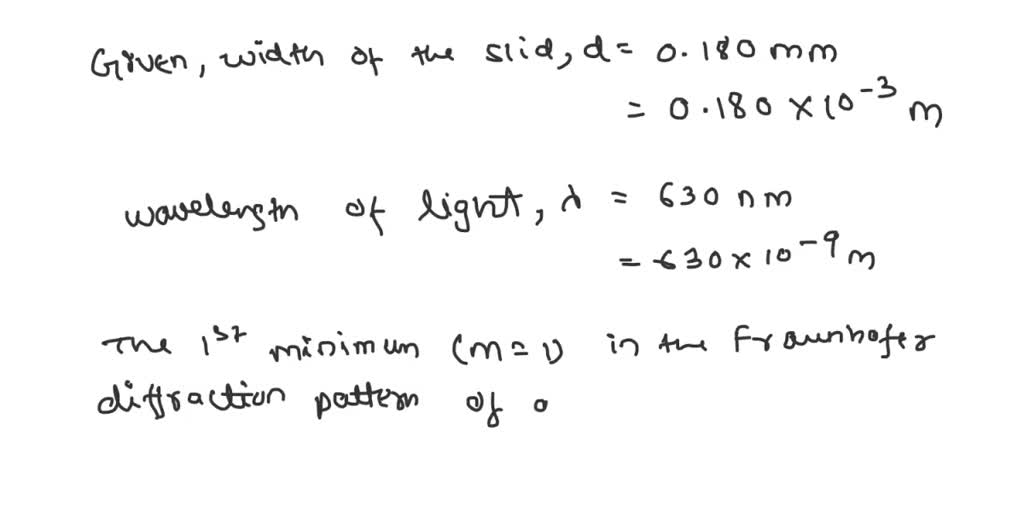 Given, width of the slid, d = 0.180 mm
= 0.180 × 10⁻³ m
wavelength of light, λ = 630 nm
= 630 × 10⁻⁹ m
The 1st minimum (m = 1) in the Fraunhofer
diffraction pattern of a